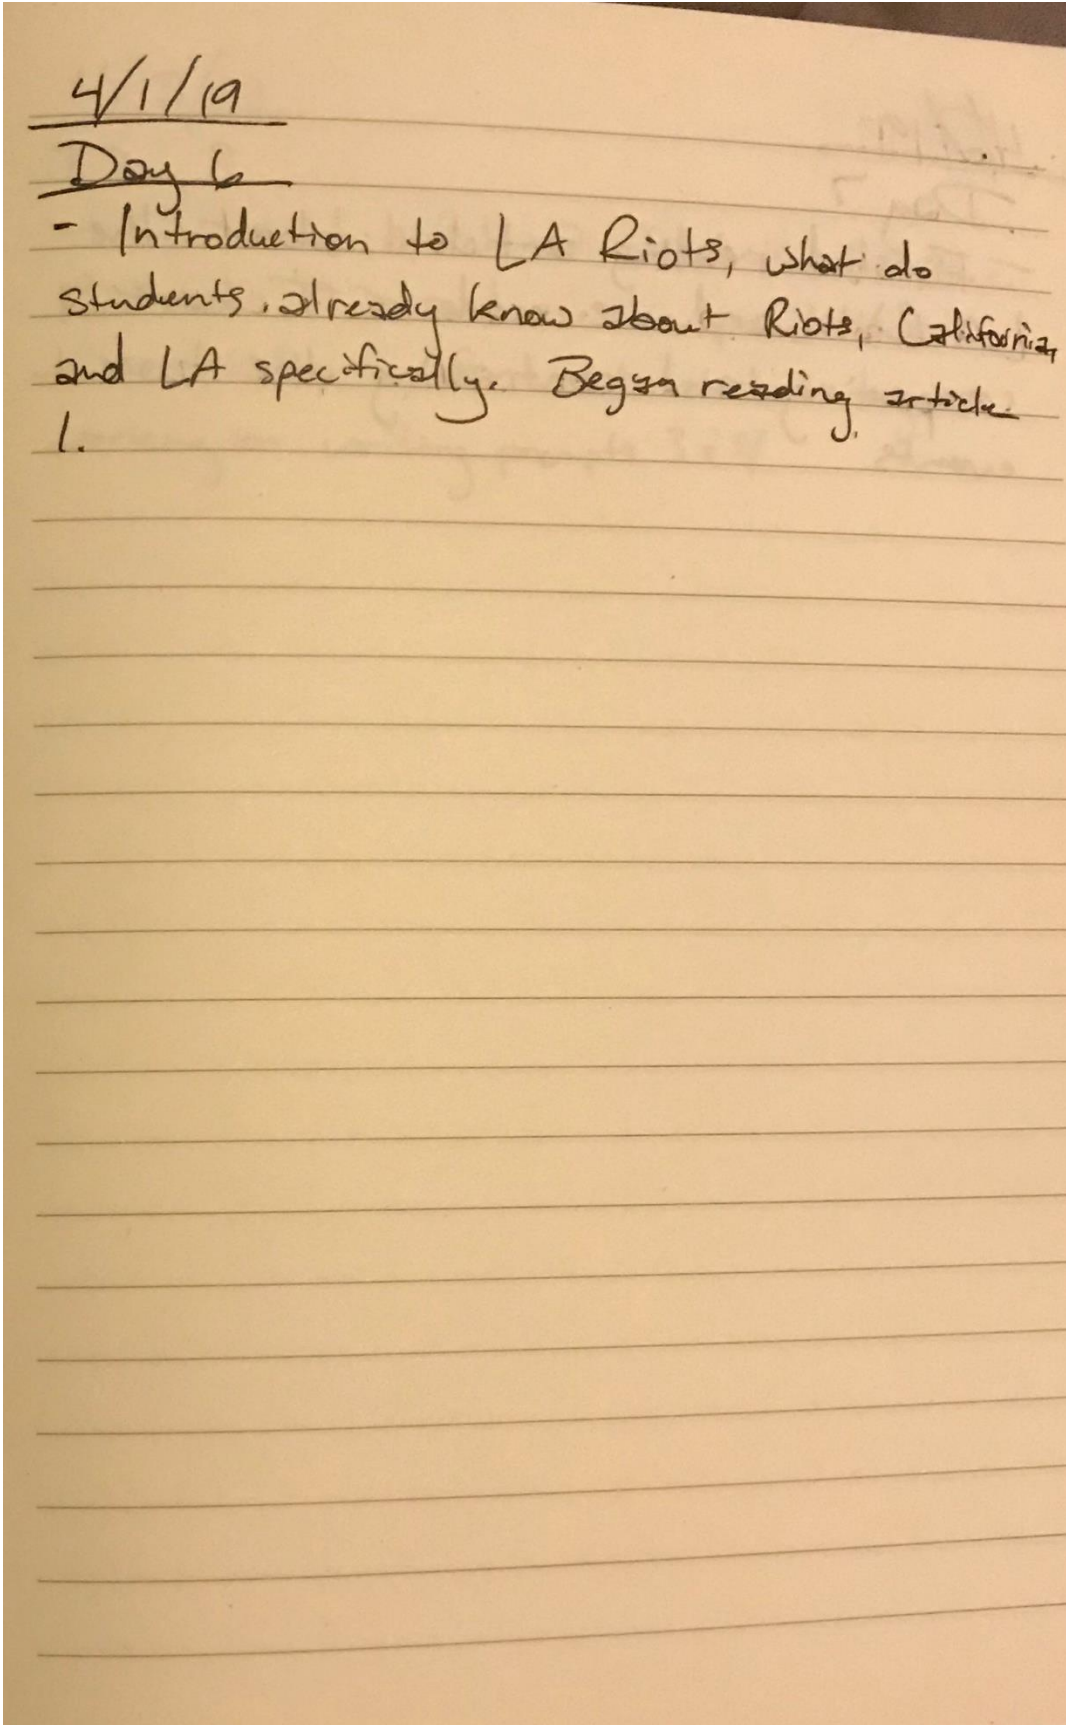 4/1/19
Day 6
- Introduction to LA Riots, what do
students already know about Riots, California,
and LA specifically. Began reading article
1.